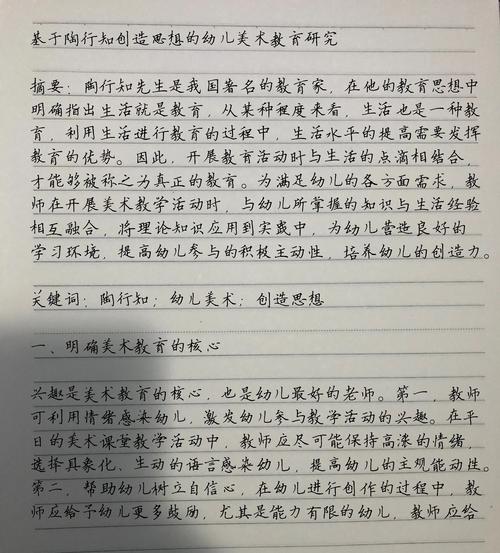 基于陶行知创造思想的幼儿美术教育研究
摘要：陶行知先生是我国著名的教育家，在他的教育思想中
明确指出生活就是教育，从某种程度来看，生活也是一种教
育，利用生活进行教育的过程中，生活水平的提高需要发挥
教育的优势。因此，开展教育活动时与生活的点滴相结合，
才能够被称之为真正的教育。为满足幼儿的各方面需求，教
师在开展美术教学活动时，与幼儿所掌握的知识与生活经验
相互融合，将理论知识应用到实践中，为幼儿营造良好的
学习环境，提高幼儿参与的积极主动性，培养幼儿的创造力。
关键词：陶行知；幼儿美术；创造思想
一、明确美术教育的核心
兴趣是美术教育的核心，也是幼儿最好的老师。第一，教师
可利用情绪感染幼儿，激发幼儿参与教学活动的兴趣。在平
日的美术课堂教学活动中，教师应尽可能保持高涨的情绪，
选择具象化、生动的语言感染幼儿，提高幼儿的主观能动性。
第二，帮助幼儿树立自信心，在幼儿进行创作的过程中，教
师应给予幼儿更多鼓励，尤其是能力有限的幼儿，教师应给